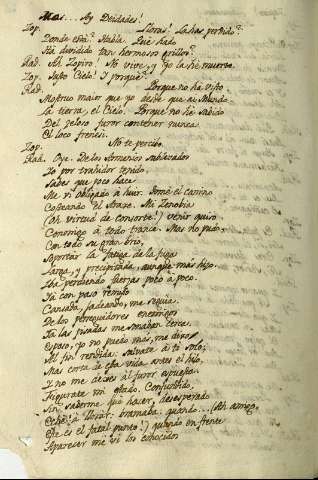 Mas... Ay Deidades!
Zop. Lloras! La has perdido?
Donde está? Habla. Qué hado
Ha dividido tan hermosos grillos?
Rad. Ah Zopiro! No vive, y yo la hé muerto.
Zop. Justo Cielo! Y porqué?
Rad. Porque no há visto
Mostruo maior que yo desde que ai Mundo
La tierra, el Cielo. Porque no hé sabido
Del zeloso furor contener nunca
El loco frenesi.
Zop. No te percibo.
Rad. Oye. De los Armenios sublevados
Yo por trahidor tenido,
Sabes que poco hace
Me vi obligado á huir. Tomé el camino
Costeando el Araxe. Mi Zenobia
(Ah virtud de consorte!) venir quiso
Conmigo á todo trance. Mas no pudo,
Con todo su gran brio,
Soportar la fatiga de la fuga
Larga, y precipitada, aunque más hizo.
Iba perdiendo fuerzas poco á poco.
Ya con paso remiso
Cansada, jadeando, me seguia.
De los perseguidores enemigos
Ya las pisadas me sonaban cerca.
Esposo, yo no puedo más, me dixo
Al fin rendida: salvate á ti solo;
Mas corta de esta vida antes el hilo,
Y no me dexes al furor expuesta.
Figurate mi estado. Confundido,
Sin saberme qué hacer, desesperado
Eché á llorar: bramaba: quando... (Ah amigo,
Este es el fatal punto!) quando en frente
Aparecer me vi los conocidos